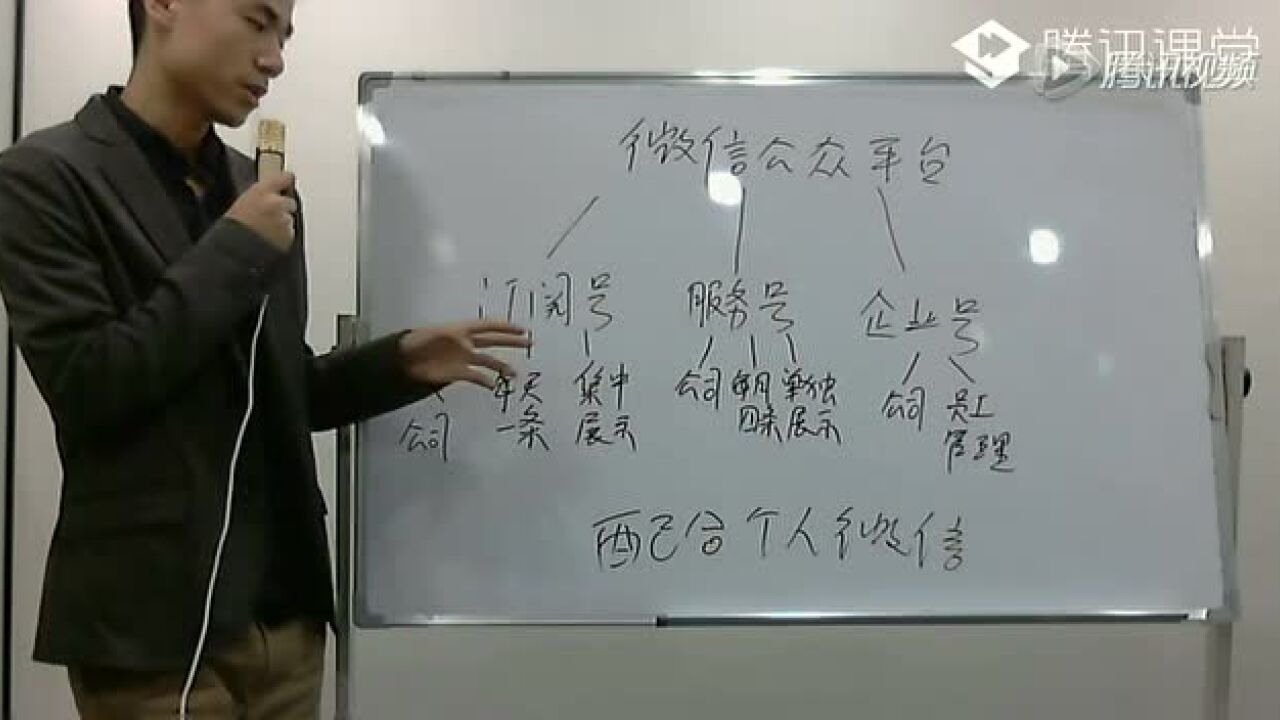 腾讯课堂
腾讯视频
微信公众平台
订阅号 服务号 企业号
公司 每天一条 集中展示 公司 每月四条 单独展示 公司 员工管理
配合个人微信